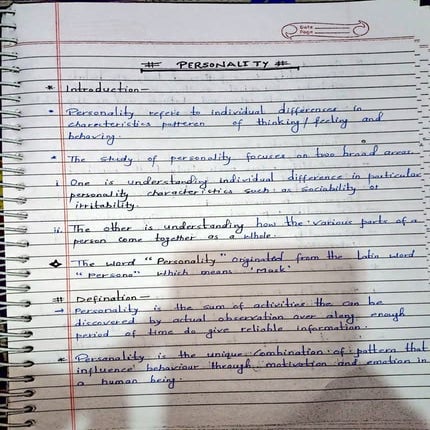 Date
Page
# PERSONALITY #
* Introduction-
• Personality refers to individual differences in
characteristics patteren of thinking/feeling and
behaving.
* The study of personality focuses on two broad areas
i One is understanding individual difference in particular
personality characteristics such as sociability or
irritability.
ii. The other is understanding how the various parts of a
person come together as a whole.
The word "Personality" originated from the Latin word
"Persona" which means 'Mask'
# Defination-
→ Personality is the sum of activities the can be
discovered by actual observation over along enough
period of time do give reliable information.
* Personality is the unique Combination of pattern that
influence behaviour through motivation and emotion in
a human being.